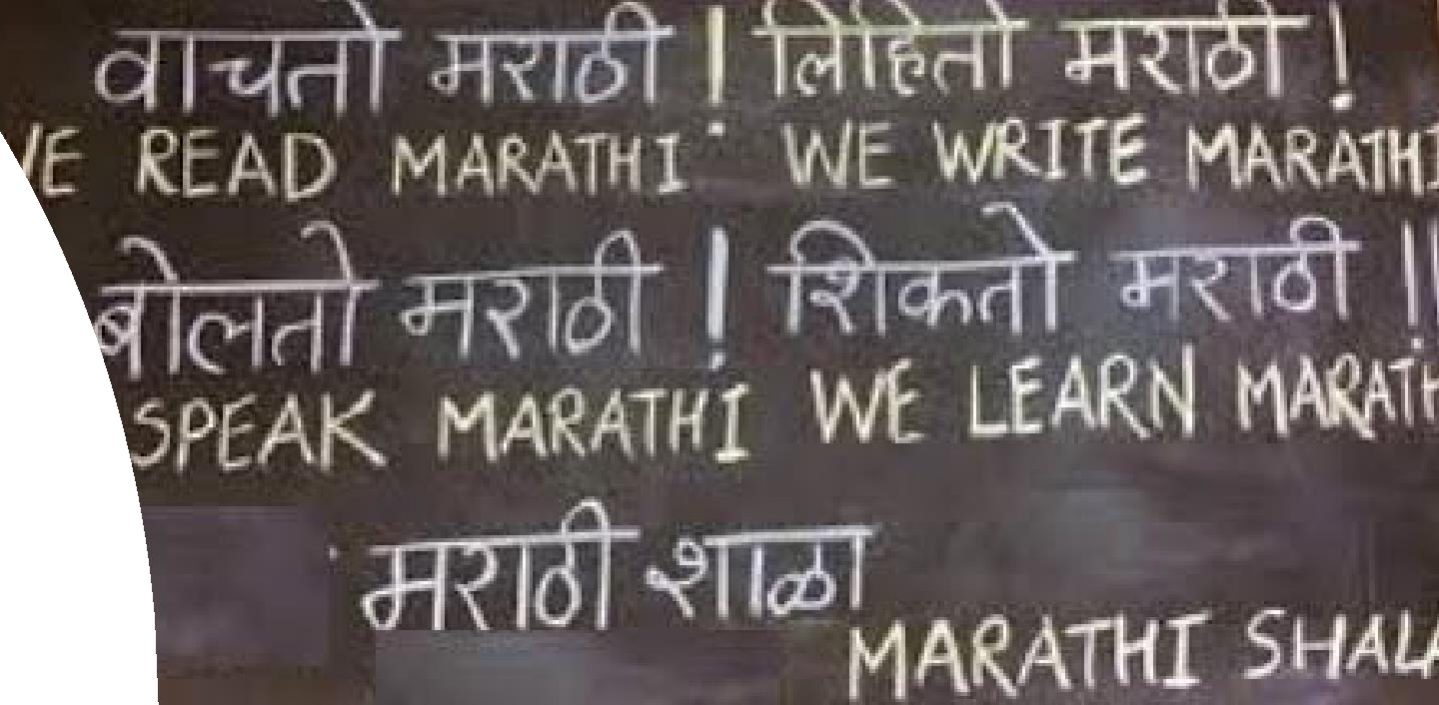 वाचतो मराठी ! लिहितो मराठी !
WE READ MARATHI WE WRITE MARATHI
बोलतो मराठी ! शिकतो मराठी !!
SPEAK MARATHI WE LEARN MARATH
मराठी शाळा
MARATHI SHALA